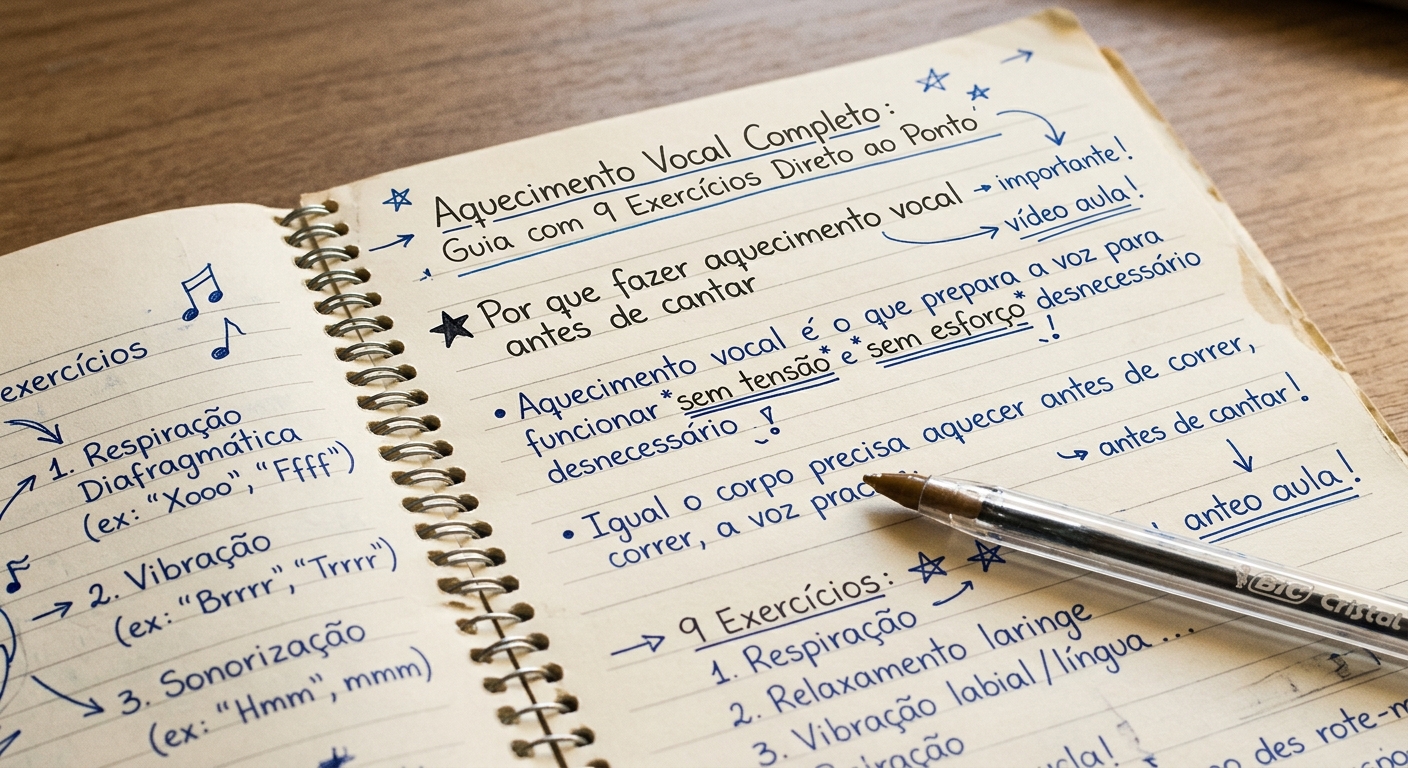 exercícios
1. Respiração
Diafragmática
(ex: "Xooo", "Ffff")
2. Vibração
(ex: "Brrrr", "Trrrr")
3. Sonorização
(ex: "Hmm", mmm)
Aquecimento Vocal Completo:
Guia com 9 Exercícios Direto ao Ponto
Por que fazer aquecimento vocal → importante!
antes de cantar
vídeo aula!
• Aquecimento vocal é o que prepara a voz para
funcionar *sem tensão* e *sem esforço* desnecessário
desnecessário !
!
• Igual o corpo precisa aquecer antes de correr,
correr, a voz
antes de cantar!
anteo aula!
→ 9 Exercícios:
1. Respiração
2. Relaxamento laringe
3. Vibração labial/língua ...
des rote-m
BIC Cristal